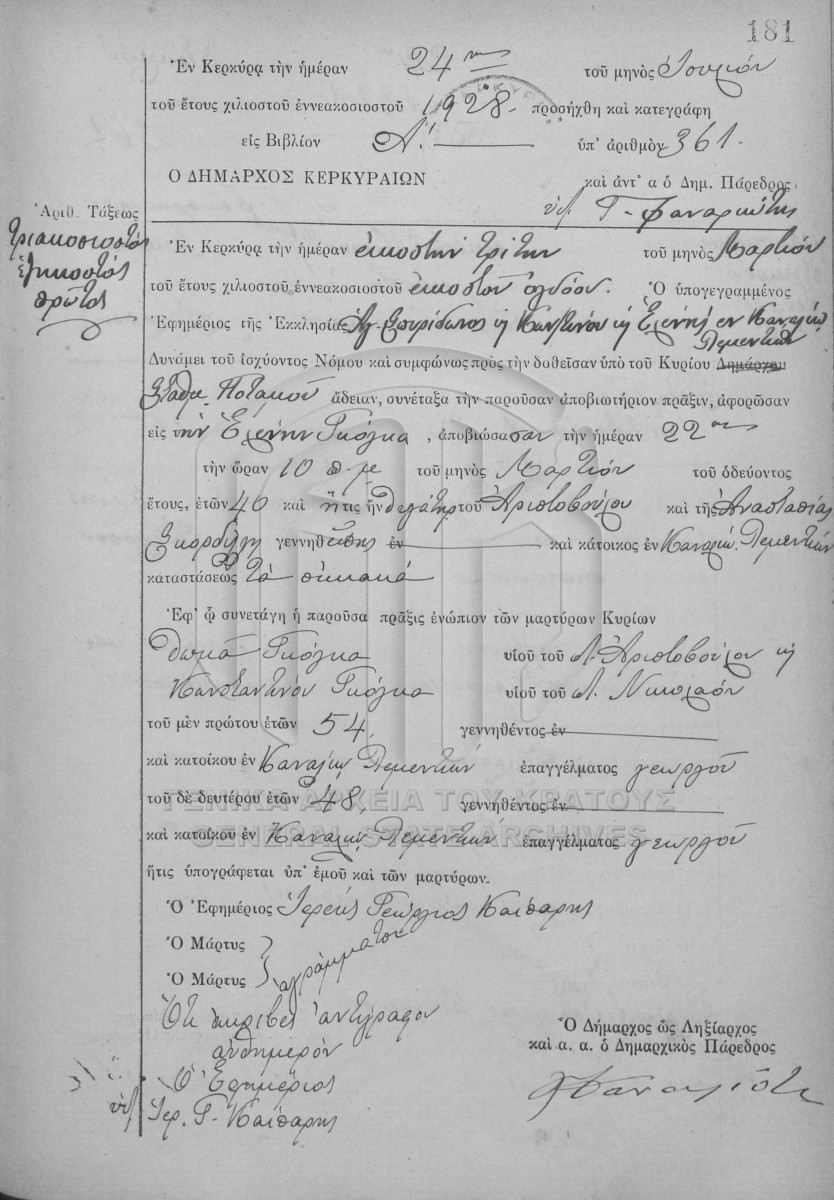 181
Ἐν Κερκύρᾳ τὴν ἡμέραν 24ην τοῦ μηνὸς Ἰουνίου
τοῦ ἔτους χιλιοστοῦ ἐννεακοσιοστοῦ 1928 προσήχθη καὶ κατεγράφη
εἰς Βιβλίον Α. ὑπ' ἀριθμὸν 361.
Ο ΔΗΜΑΡΧΟΣ ΚΕΡΚΥΡΑΙΩΝ καὶ ἀντ' α ὁ Δημ. Πάρεδρος
Γ. Φαναριώτης
Ἀριθ. Τάξεως
τριακοσιοστός
ἑξηκοστός
πρῶτος
Ἐν Κερκύρᾳ τὴν ἡμέραν εἰκοστὴν τρίτην τοῦ μηνὸς Μαρτίου
τοῦ ἔτους χιλιοστοῦ ἐννεακοσιοστοῦ εἰκοστοῦ ὀγδόου. Ὁ ὑπογεγραμμένος
Ἐφημέριος τῆς Ἐκκλησίας Ἁγ. Σπυρίδωνος κ Κωνσταντίνου κ Ἑλένης ἐν Καναλίῳ
Πεμεντκῶν
Δυνάμει τοῦ ἰσχύοντος Νόμου καὶ συμφώνως πρὸς τὴν δοθεῖσαν ὑπὸ τοῦ Κυρίου Δημάρχου
Σταθμ. Ποταμοῦ ἄδειαν, συνέταξα τὴν παροῦσαν ἀποβιωτήριον πρᾶξιν, ἀφορῶσαν
εἰς τὴν Ἑλένην Γκόγκα, ἀποβιώσασαν τὴν ἡμέραν 22αν
τὴν ὥραν 10 π.μ. τοῦ μηνὸς Μαρτίου τοῦ ὁδεύοντος
ἔτους, ἐτῶν 40 καὶ ἥτις ἦν θυγάτηρ τοῦ Ἀριστοβούλου καὶ τῆς Ἀναστασίας
Σκορδίλη γεννηθείσης ἐν καὶ κάτοικος ἐν Καναλίῳ Πεμεντκῶν
καταστάσεως τὰ οἰκιακά
Ἐφ' ᾧ συνετάγη ἡ παροῦσα πρᾶξις ἐνώπιον τῶν μαρτύρων Κυρίων
Θωμᾶ Γκόγκα υἱοῦ τοῦ Ἀριστοβούλου κ
Κωνσταντίνου Γκόγκα υἱοῦ τοῦ Νικολάου
τοῦ μὲν πρώτου ἐτῶν 54, γεννηθέντος ἐν
καὶ κατοίκου ἐν Καναλίῳ Πεμεντκῶν ἐπαγγέλματος γεωργοῦ
τοῦ δὲ δευτέρου ἐτῶν 48, γεννηθέντος ἐν
ΓΕΝΙΚΑ ΑΡΧΕΙΑ ΤΟΥ ΚΡΑΤΟΥΣ
καὶ κατοίκου ἐν Καναλίῳ Πεμεντκῶν ἐπαγγέλματος γεωργοῦ
GENERAL STATE ARCHIVES
ἥτις ὑπογράφεται ὑπ' ἐμοῦ καὶ τῶν μαρτύρων.
Ὁ Ἐφημέριος Ἱερεὺς Γεώργιος Καίσαρης
Ὁ Μάρτυς
Ὁ Μάρτυς ἀγράμματοι
Ὅτι ἀκριβὲς ἀντίγραφον
αὐθημερόν
Ὁ Ἐφημέριος
Ἱερ. Γ. Καίσαρης
Ὁ Δήμαρχος ὡς Ληξίαρχος
καὶ α. α. ὁ Δημαρχικὸς Πάρεδρος